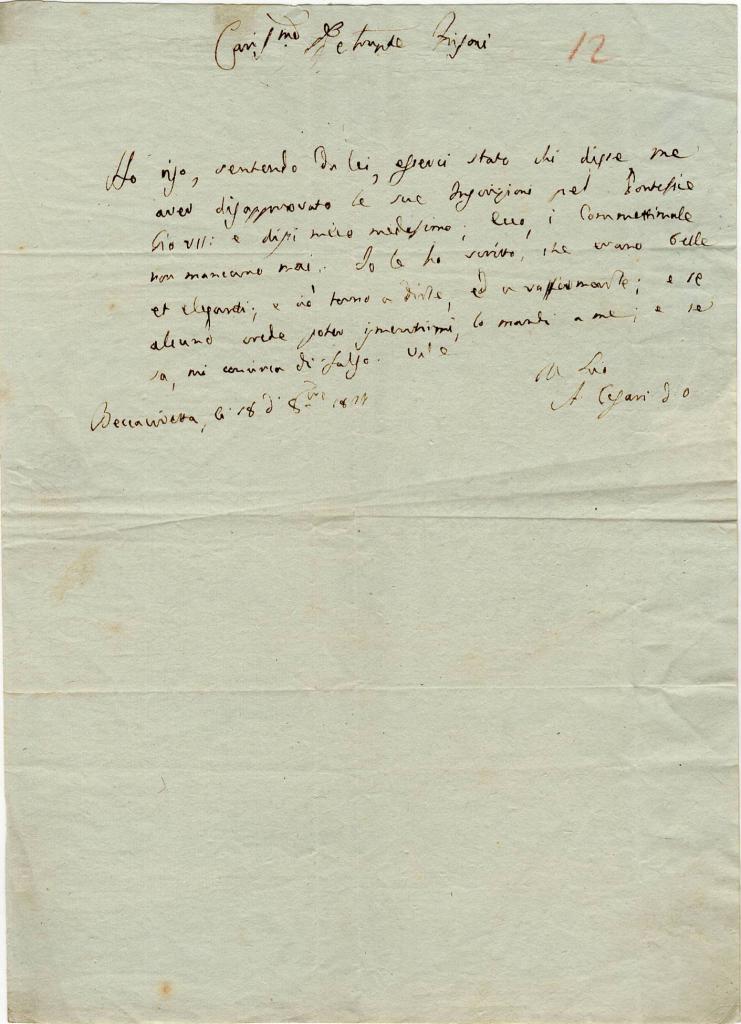 Cariss.mo
12
Ho riso, sentendo da lei, esserci stato chi disse me
aver disapprovato le sue Inscrizioni pel Pontefice
Pio VII: e dissi meco medesimo; Ecco, i Commettimale
non mancano mai. Io le ho scritto, che erano belle
et eleganti; e ciò torno a dirle, ed a raffermarle; e se
alcuno crede poter ismentirmi, lo mandi a me; e se
sa, mi convinca di falso. Vale
Il Suo
A. Cesari d. O
li 18 d 8bre